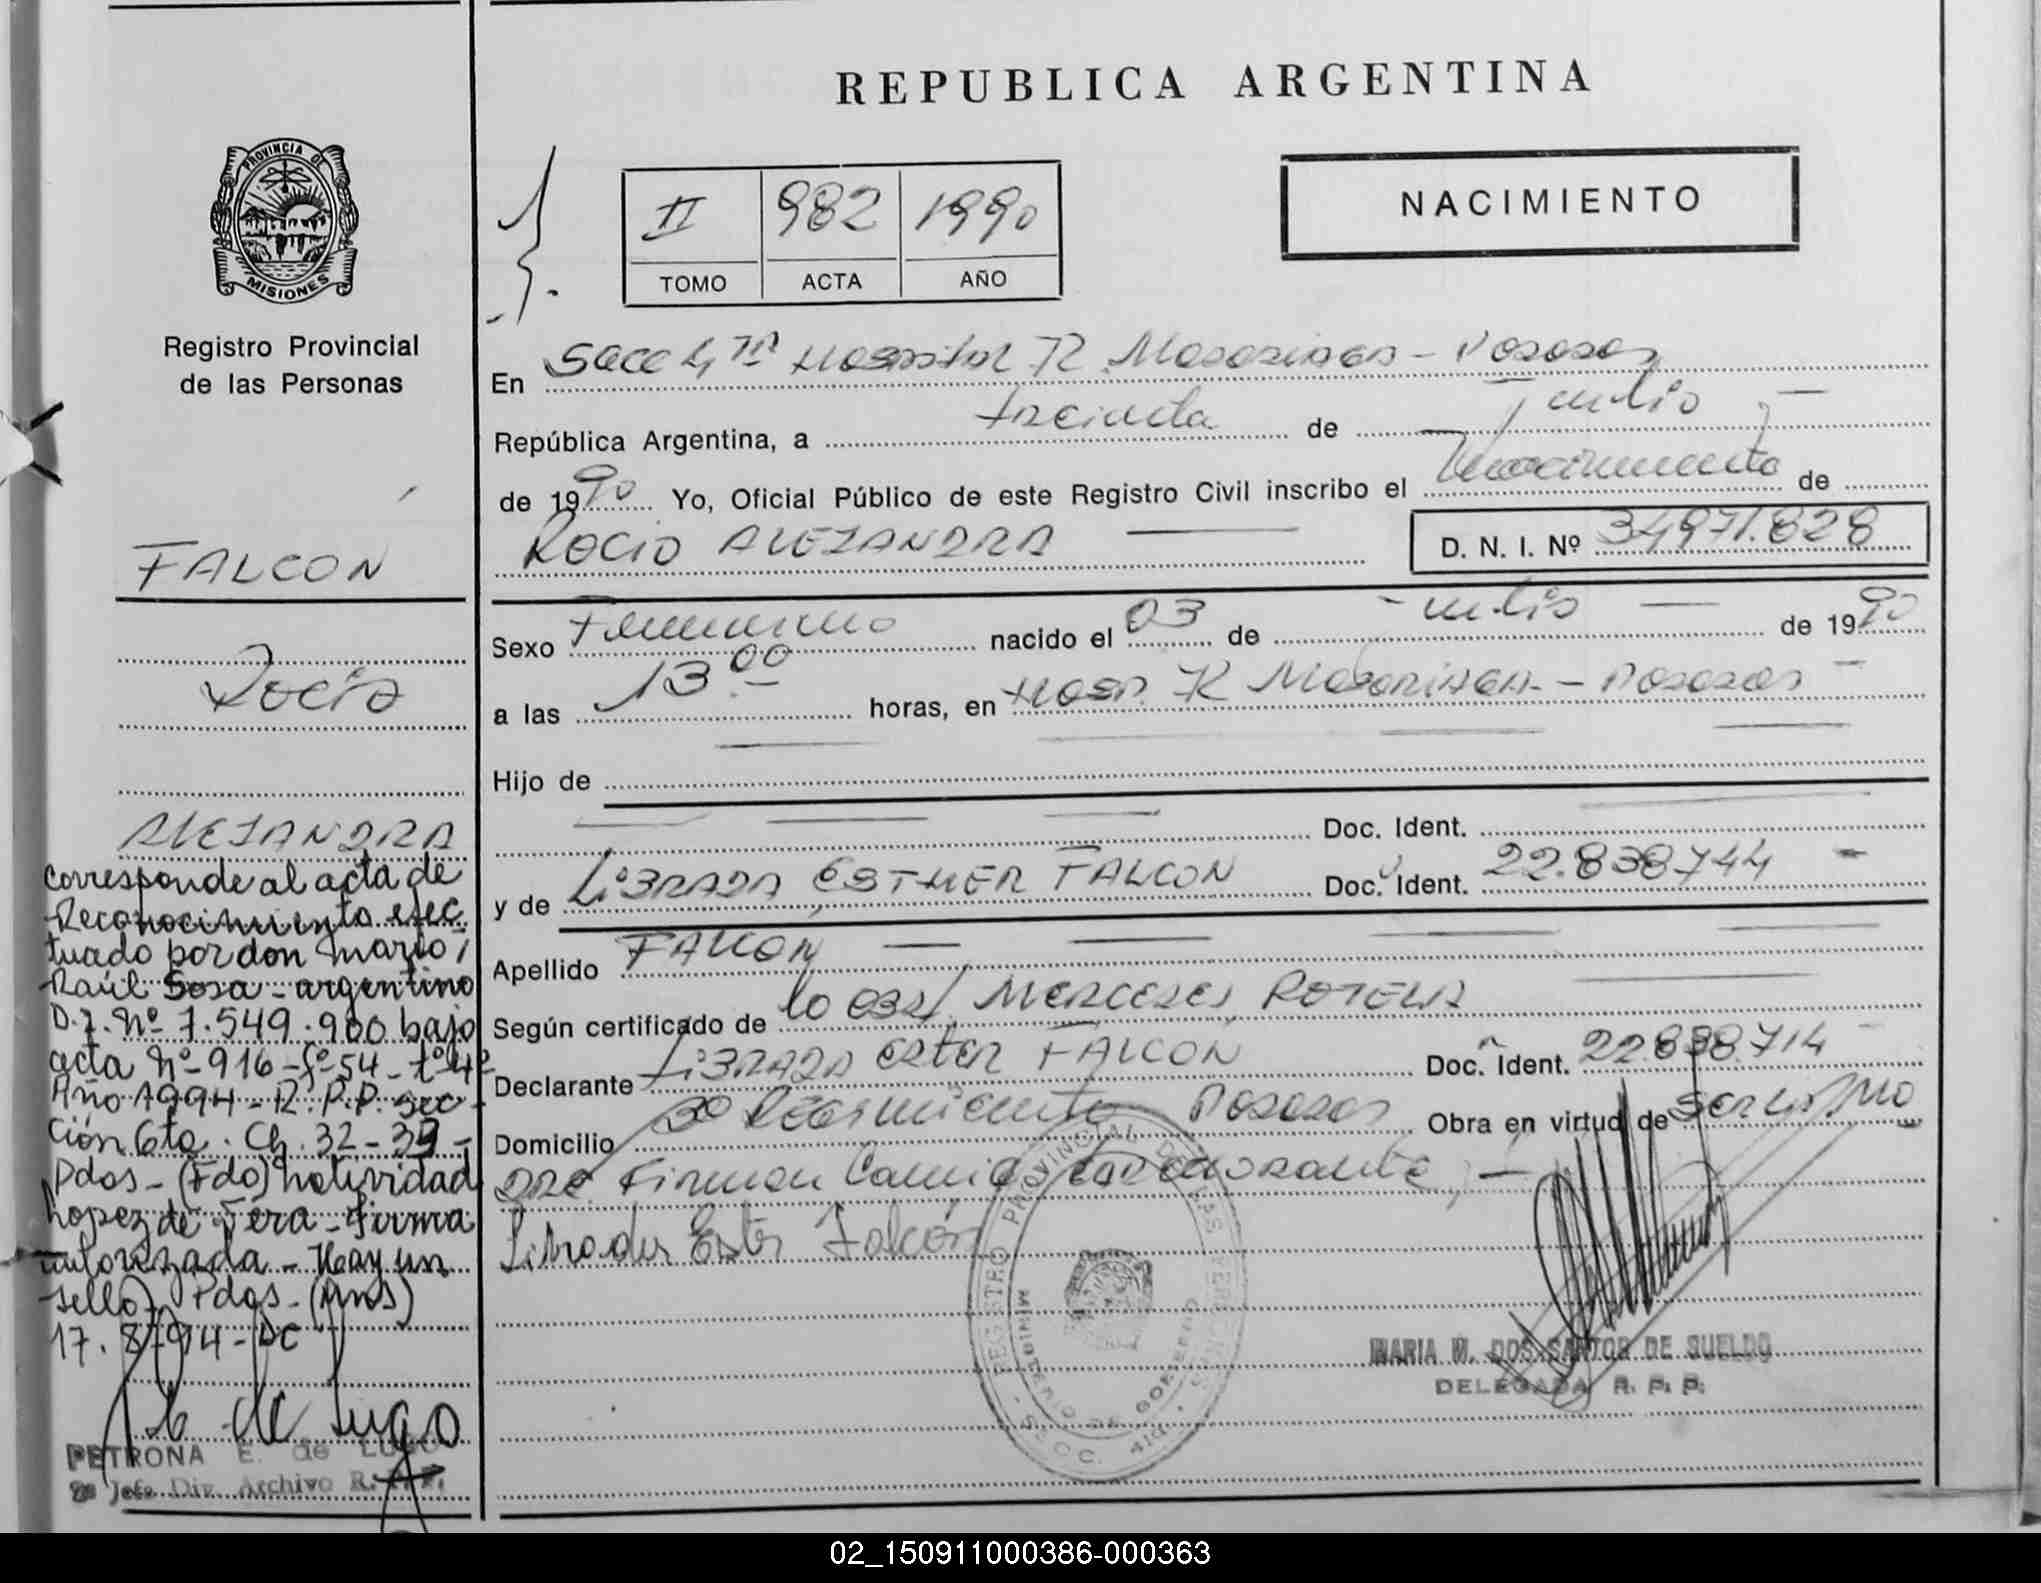 REPUBLICA ARGENTINA
PROVINCIA DE
MISIONES
Registro Provincial
de las Personas
II 982 1990
TOMO ACTA AÑO
NACIMIENTO
En Secc 4ta Hospital R Madariaga - Posadas
República Argentina, a treinta de Julio
de 1990 Yo, Oficial Público de este Registro Civil inscribo el Nacimiento de
ROCIO ALEJANDRA D. N. I. Nº 34971.828
Sexo Femenino nacido el 03 de Julio de 1990
a las 13 00 horas, en Hosp. R Madariaga - Posadas
Hijo de
Doc. Ident.
y de LIBRADA ESTHER FALCON Doc. Ident. 22.838744
Apellido FALCON
Según certificado de lo obst MERCEDES ROTELA
Declarante LIBRADA ESTER FALCON Doc. Ident. 22.838.714
Domicilio Posadas Obra en virtud de ser la
madre Firman Conmigo
Librada Ester Falcón
REGISTRO PROVINCIAL DE LAS PERSONAS
MINISTERIO DE GOBIERNO
SECC. 4ta
MARIA M. DOS SANTOS DE SUELDO
DELEGADA R. P. P.
FALCON
Rocío
ALEJANDRA
Corresponde al acta de
Reconocimiento efec
tuado por don Mario
Raúl Sosa - argentino
D.I. Nº 7.549.900 bajo
acta Nº 916 - fº 54 - tº 4º
Año 1994 - R.P.P. Sec
ción 6ta. Ch. 32-39 -
Pdas - (Fdo) Natividad
Lopez de Vera - Firma
autorizada - Hay un
sello) Pdas - (Mns)
17. 8. 94 - DC
PETRONA E. de LUGO
2º Jefe Div. Archivo R. P. P.
02_150911000386-000363